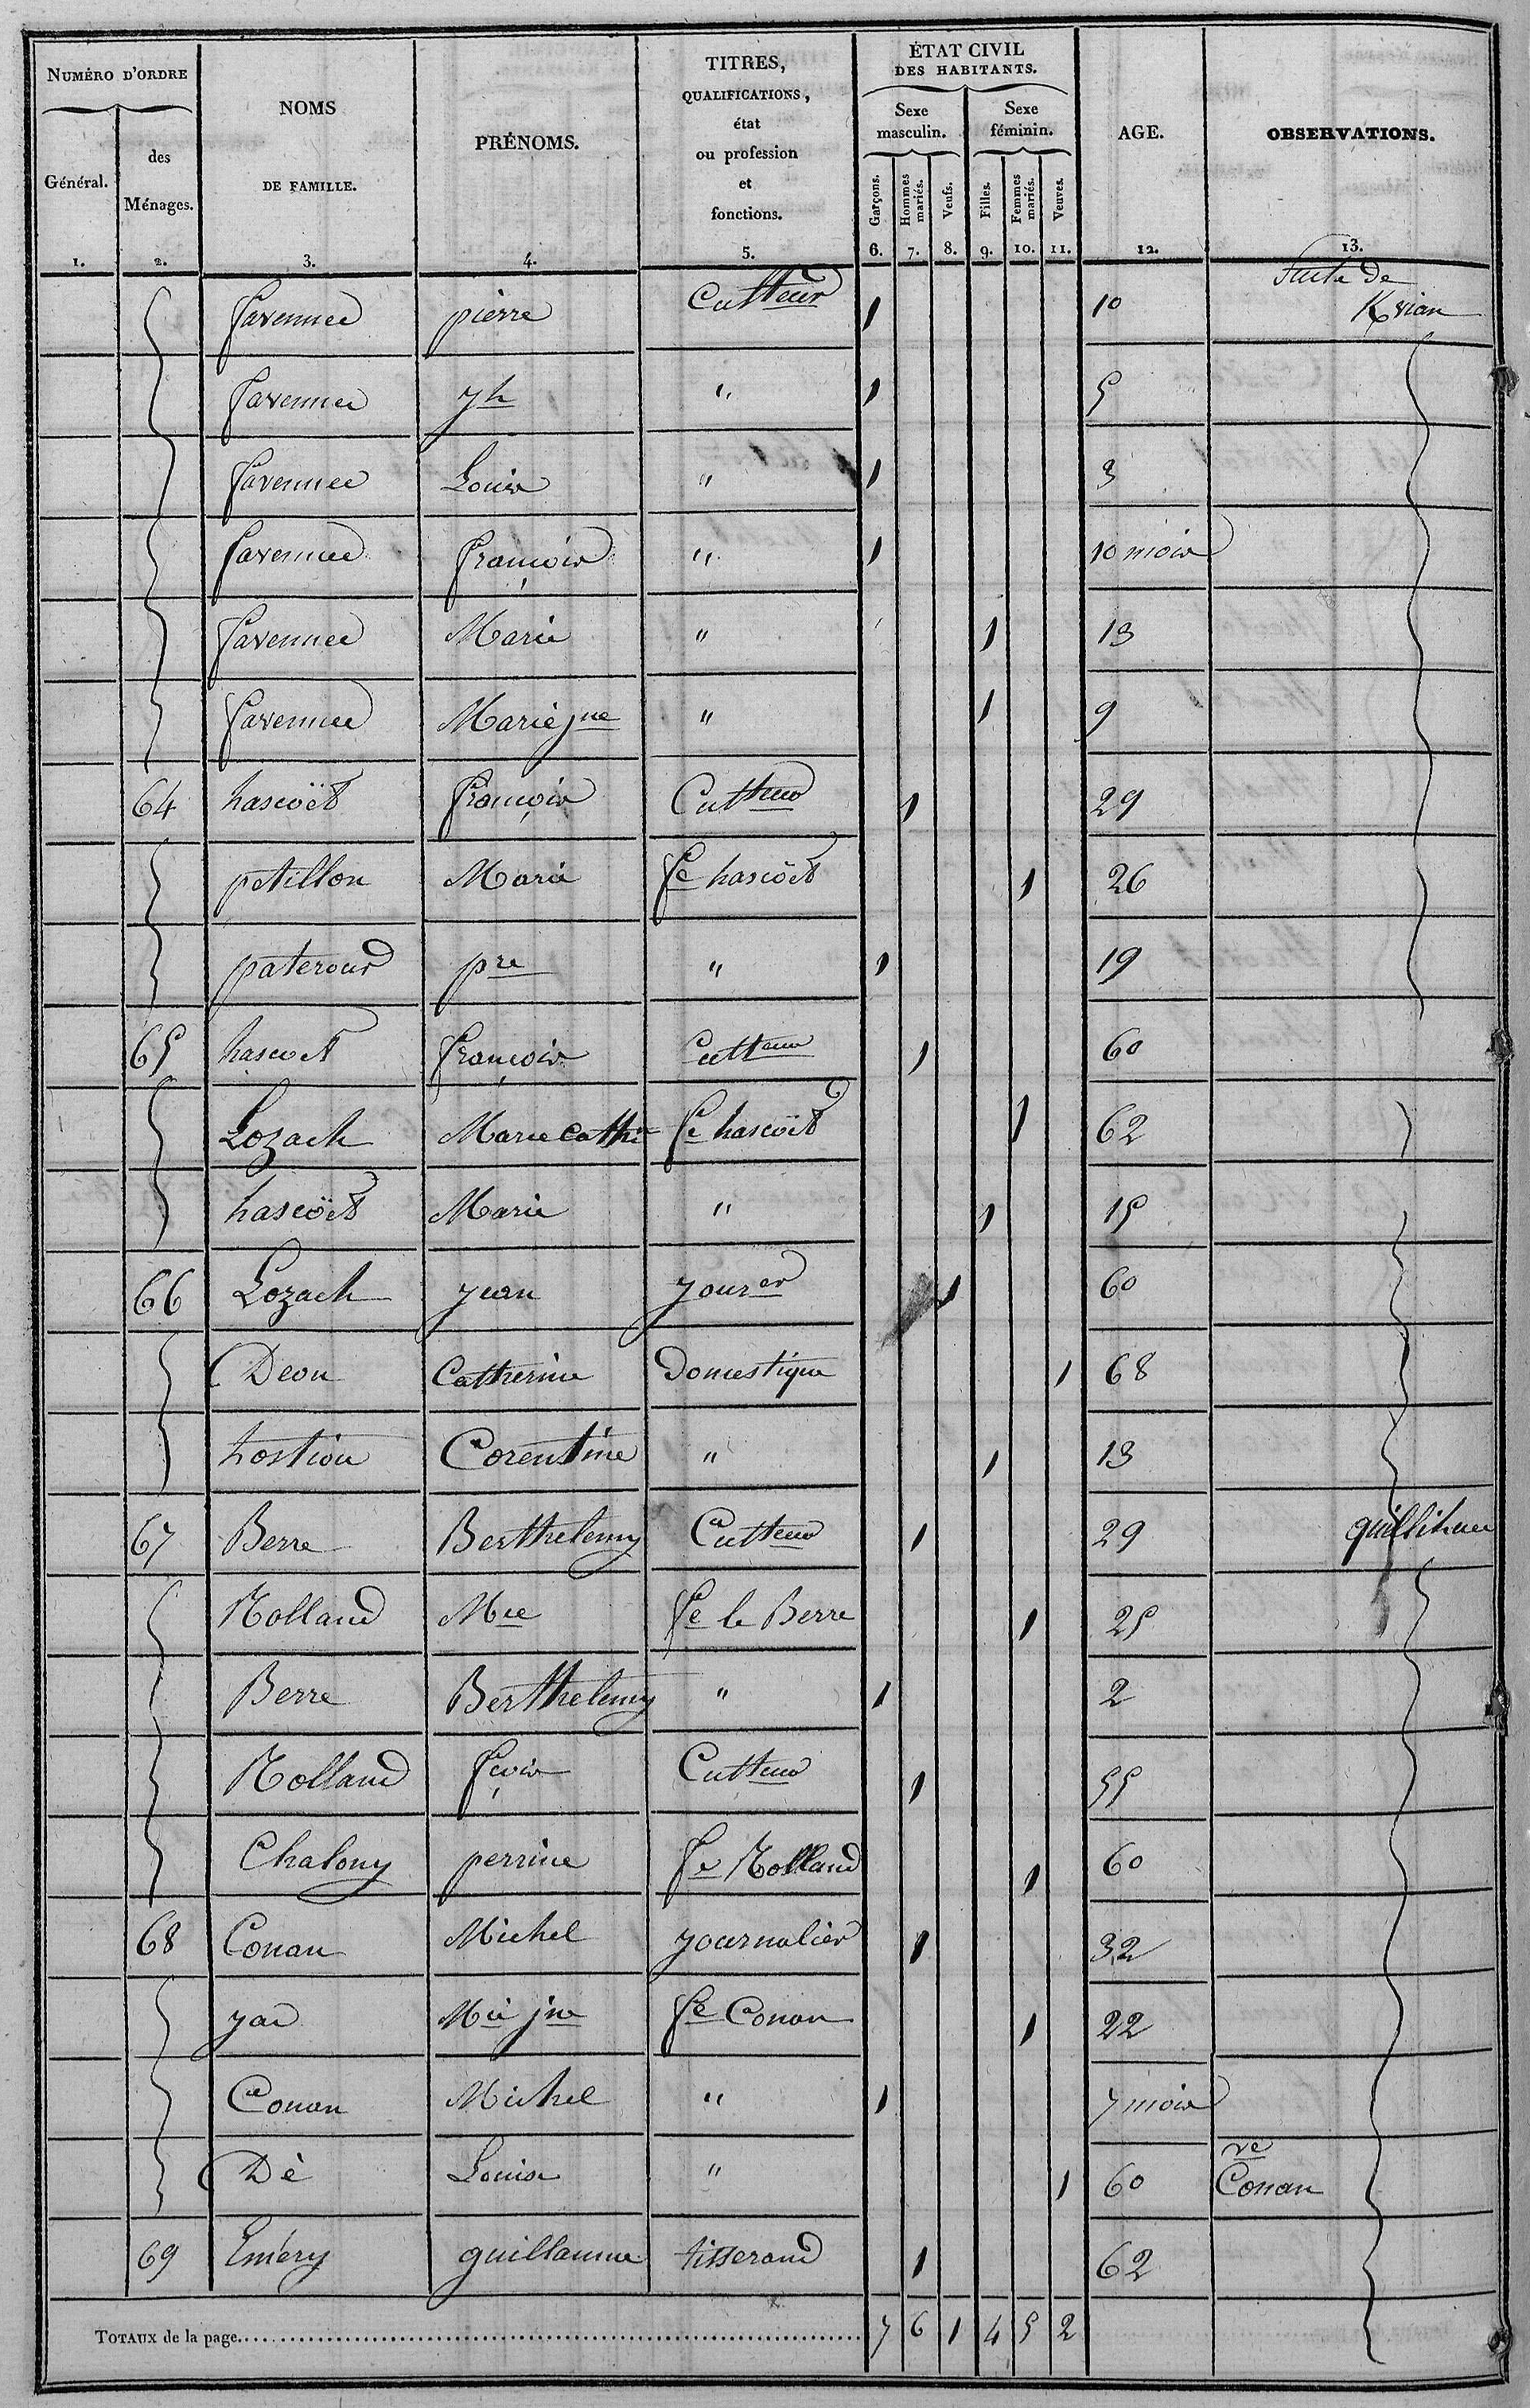 NUMÉRO D'ORDRE
Général.
1.
des Ménages.
2.
NOMS DE FAMILLE.
3.
PRÉNOMS.
4.
TITRES, QUALIFICATIONS, état ou profession et fonctions.
5.
ÉTAT CIVIL DES HABITANTS.
Sexe masculin.
Sexe féminin.
Garçons. 6.
Hommes mariés. 7.
Veufs. 8.
Filles. 9.
Femmes mariés. 10.
Veuves. 11.
AGE.
12.
OBSERVATIONS.
13.
favennec pierre Cultteur 1 10 Suite de Kvian
favennec yh " 1 5
favennec Louis " 1 3
favennec françois " 1 10 mois
favennec Marie " 1 13
favennec Marie jne " 1 9
64 hascoët françois Cultteur 1 29
petillon Marie fe hascoët 1 26
paterour pre " 1 19
65 hascoet françois Cultteur 1 60
Lozach Marie Cathe fe hascoët 1 62
hascoët Marie " 1 15
66 Lozach jean jourer 1 60
Deon Catherine Domestique 1 68
hostiou Corentine " 1 13
67 Berre Berthelemy Cultteur 1 29 quillihuec
Rolland Mie fe le Berre 1 25
Berre Berthelemy " 1 2
Rolland fçois Cultteur 1 55
Chalony perrine fe Rolland 1 60
68 Conan Michel journalier 1 32
yao Mie jne fe Conan 1 22
Conan Michel " 1 7 mois
Dè Louise " 1 60 ve Conan
69 Eméry guillaume tisserand 1 62
TOTAUX de la page. 7 6 1 4 5 2